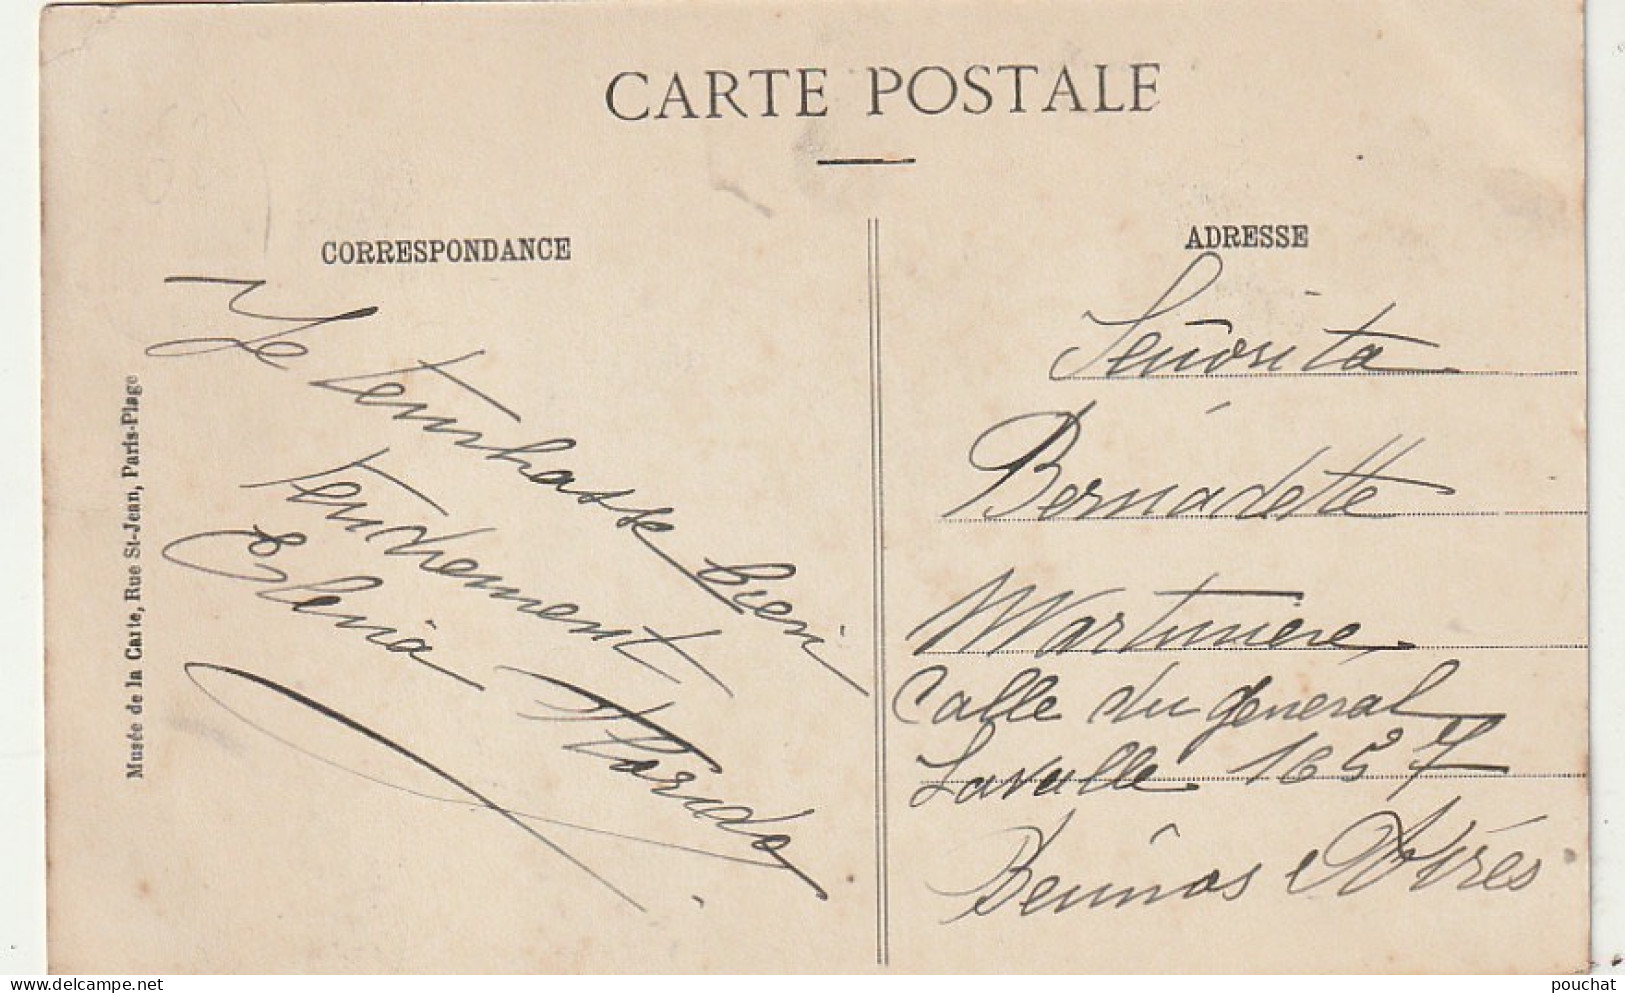 CARTE POSTALE
CORRESPONDANCE
Je t'embrasse bien
tendrement
ADRESSE
Señorita
Bernadette
Martinière
Calle du général
Lavalle 1657
Buenos Ayres
Musée de la Carte, Rue St-Jean, Paris-Plage
delcampe.net
pouchat